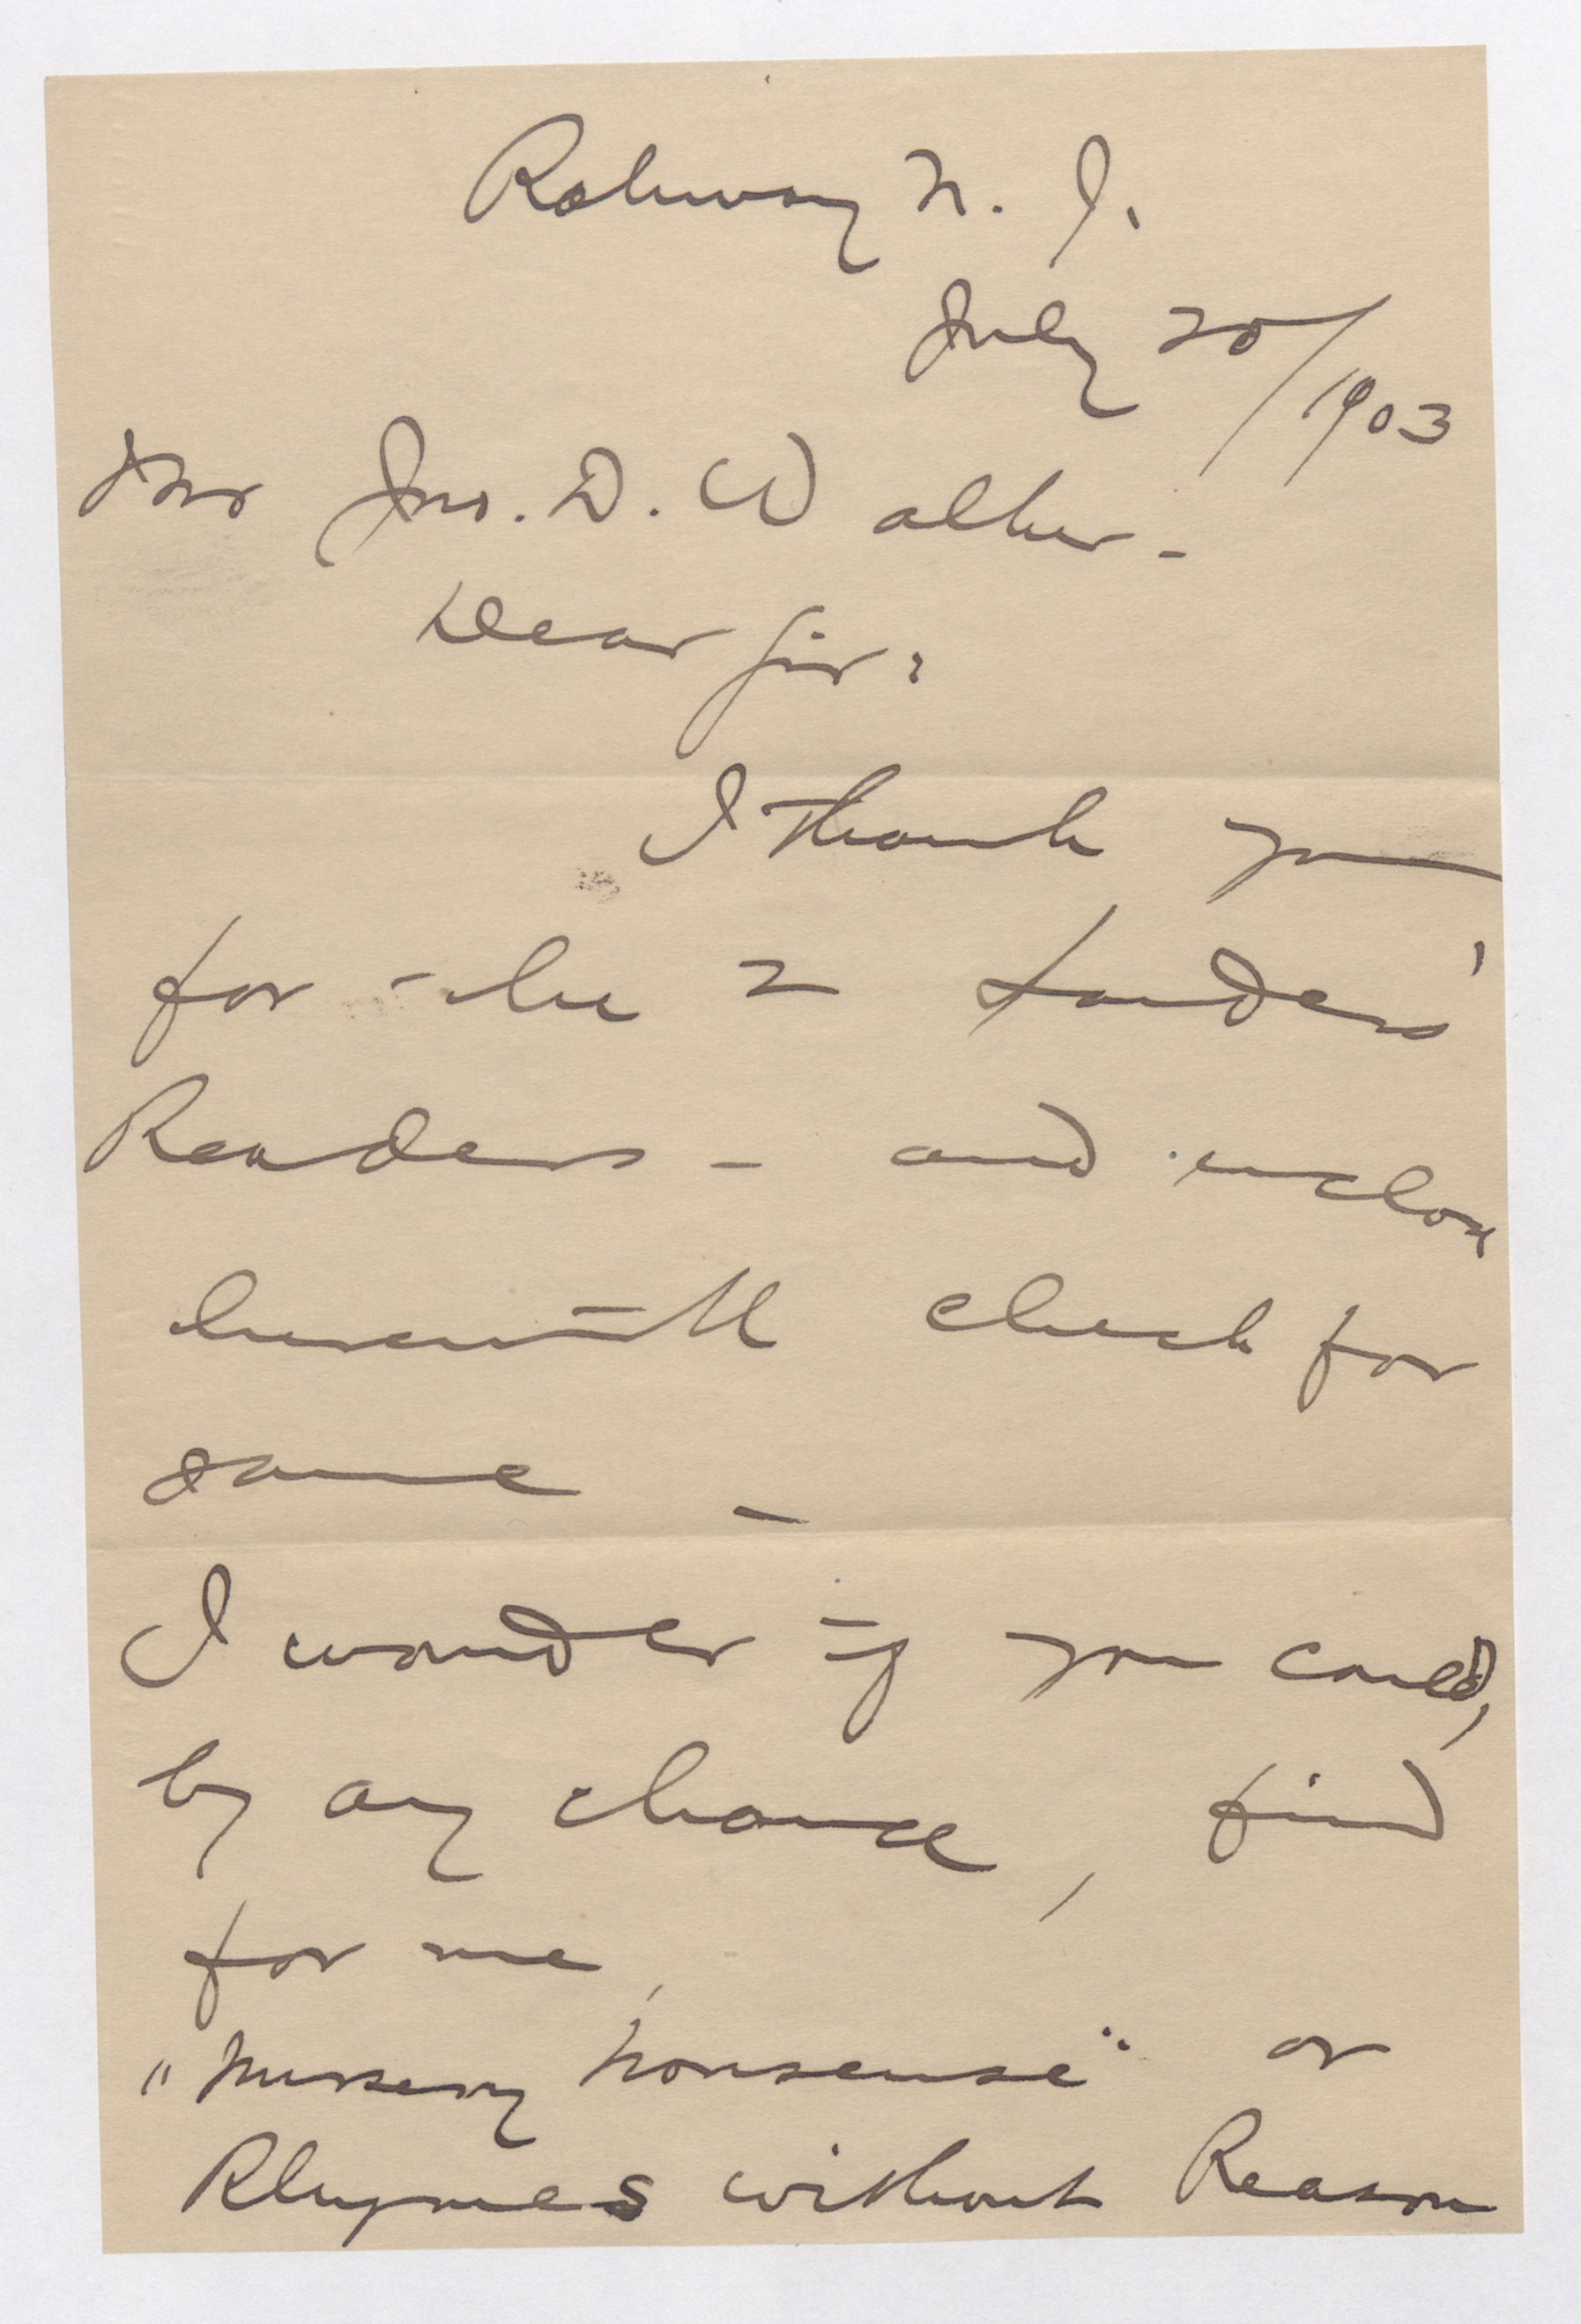 Rahway N. J.
July 20/1903
Mr Jno. D. Walker -
Dear Sir:
I thank you
for the 2 Sanders'
Readers - and inclose
herewith check for
same -
I wonder if you could,
by any chance, find
for me,
"Nursery Nonsense" or
Rhymes without Reason